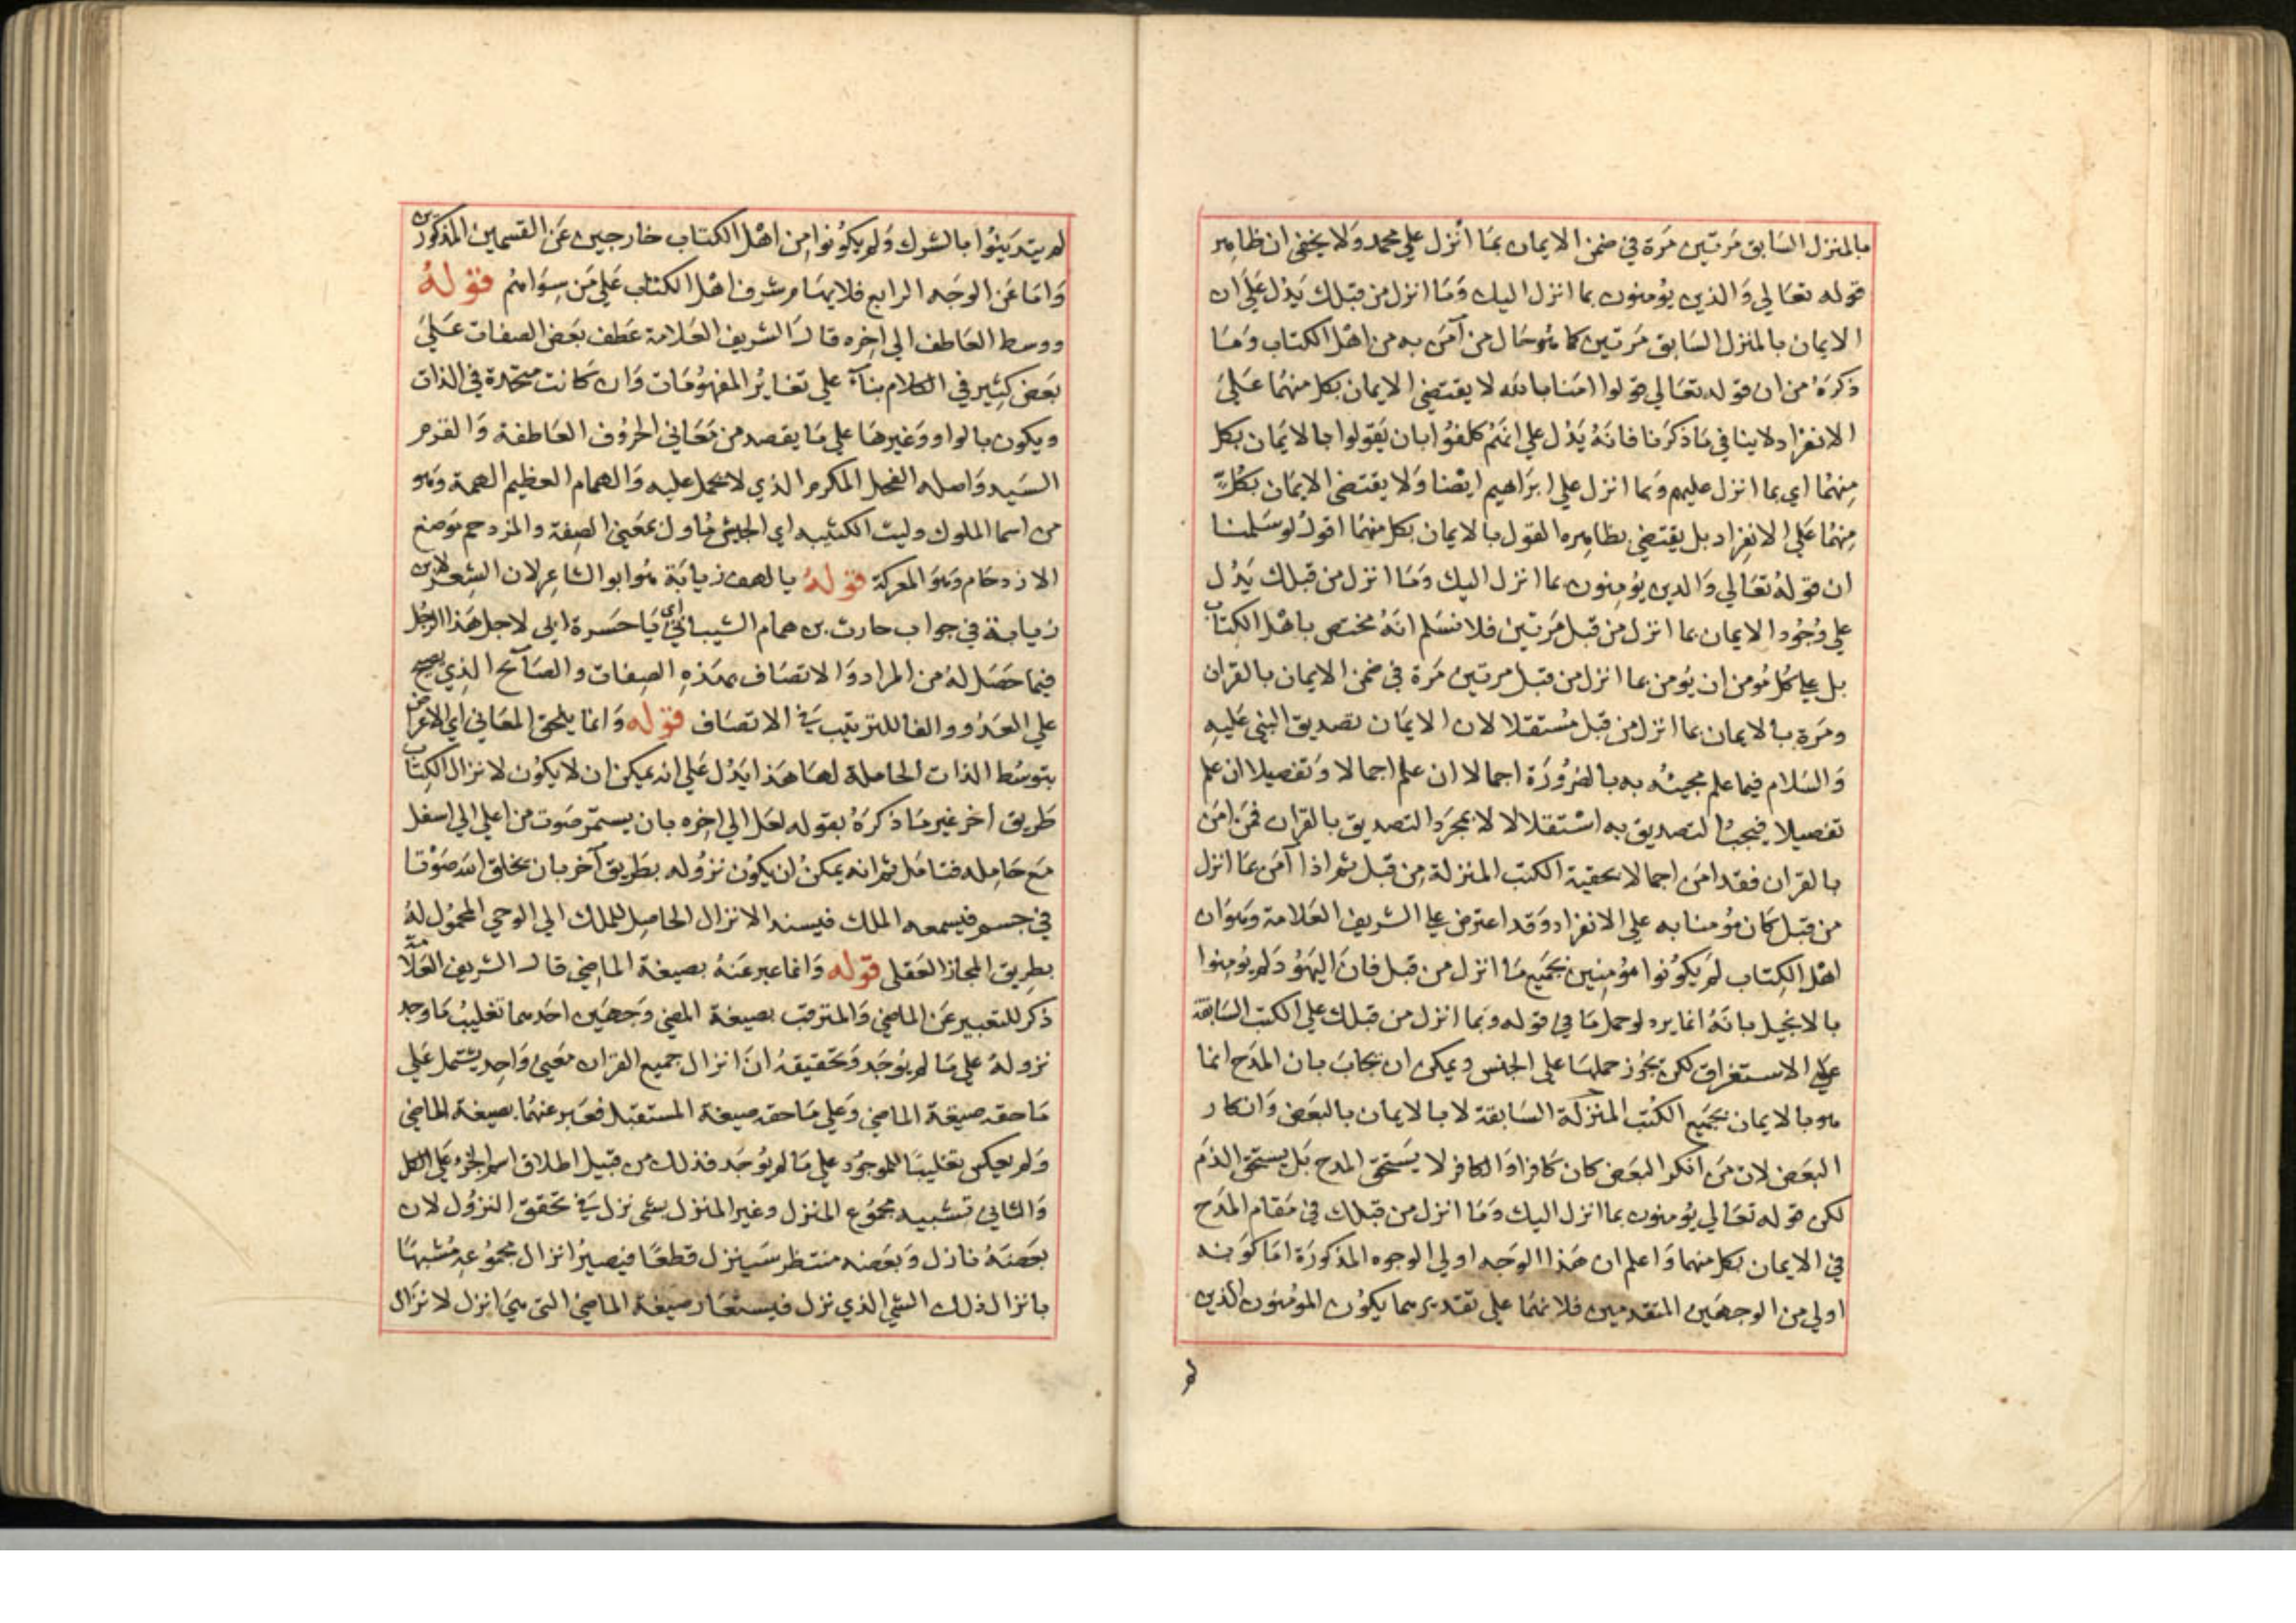 بالمنزل السابق مرتين مرة في ضمن الايمان بما انزل علي محمد ولا يخفي ان ظاهر
قوله تعالي والذين يؤمنون بما انزل اليك وما انزل من قبلك يدل علي ان
الايمان بالمنزل السابق مرتين كما هو حال من آمن به من اهل الكتاب وما
ذكره من ان قوله تعالي قولوا امنا بالله لا يقتضي الايمان بكل منهما علي
الانفراد لا ينافي ما ذكرنا فانه يدل علي انهم كلفوا بان يقولوا بالايمان بكل
منهما اي بما انزل عليهم وبما انزل علي ابراهيم ايضا ولا يقتضي الايمان بكل
منهما علي الانفراد بل يقتضي بظاهره القول بالايمان بكل منهما اقول لو سلمنا
ان قوله تعالي والدين يؤمنون بما انزل اليك وما انزل من قبلك يدل
علي وجود الايمان بما انزل من قبل مرتين فلا نسلم انه مختص باهل الكتاب
بل علي كل مؤمن ان يؤمن بما انزل من قبل مرتين مرة في ضمن الايمان بالقران
ومرة بالايمان بما انزل من قبل مستقلا لان الايمان تصديق النبي عليه
والسلام فيما علم مجيئه به بالضرورة اجمالا ان علم اجمالا وتفصيلا ان علم
تفصيلا فيجب التصديق به استقلالا لا بمجرد التصديق بالقران فمن امن
بالقران فقد امن اجمالا بحقية الكتب المنزلة من قبل ثم اذا آمن بما انزل
من قبل كان مؤمنا به علي الانفراد وقد اعترض علي الشريف العلامة وهو ان
اهل الكتاب لم يكونوا مؤمنين بجميع ما انزل من قبل فان اليهود لم يؤمنوا
بالانجيل بانه انما يرد لو حمل ما في قوله وبما انزل من قبلك علي الكتب السابقة
علي الاستغراق لكن يجوز حملها علي الجنس ويمكن ان يجاب بان المدح انما
هو بالايمان بجميع الكتب المنزلة السابقة لا بالايمان بالبعض وانكار
البعض لان من انكر البعض كان كافرا والكافر لا يستحق المدح بل يستحق الذم
لكن قوله تعالي يؤمنون بما انزل اليك وما انزل من قبلك في مقام المدح
في الايمان بكل منهما واعلم ان هذا الوجه اولي الوجوه المذكورة اما كونه
اولي من الوجهين المتقدمين فلانهما علي تقديرهما يكون المؤمنون الذين
لم
لم يتدينوا بالشرك ولم يكونوا من اهل الكتاب خارجين عن القسمين المذكورين
واما عن الوجه الرابع فلايهام شرف اهل الكتاب علي من سواهم قوله
ووسط العاطف الي اخره قال الشريف العلامة عطف بعض الصفات علي
بعض كثير في الكلام بناء علي تغاير المفهومات وان كانت متحدة في الذات
ويكون بالواو وغيرها علي ما يقصد من معاني الحروف العاطفة والقرم
السيد واصله الفحل المكرم الذي لا يحمل عليه والهمام العظيم الهمة وهو
من اسما الملوك وليث الكتيبه اي الجيش ماول بمعني الصفة والمزدحم موضع
الازدحام وهو المعركة قوله يا لهف زيابة هو ابو الشاعر لان الشعر لابن
زيابة في جواب حارث بن همام الشيباني اي يا حسرة ابي لاجل هذا الرجل
فيما حصل له من المراد والاتصاف بهذه الصفات والصابح الذي يصبح
علي العدو والفا للترتيب في الاتصاف قوله وانما يلحق المعاني اي الاعراض
بتوسط الذات الحاملة لها هذا يدل علي انه يمكن ان لا يكون لانزال الكتاب
طريق اخر غير ما ذكره بقوله لعل الي اخره بان يستمر صوت من اعلي الي اسفل
مع حامله فتامل ثم انه يمكن ان يكون نزوله بطريق آخر بان يخلق الله صوتا
في جسم فيسمعه الملك فيسند الانزال الحاصل للملك الي الوحي المحمول له
بطريق المجاز العقلي قوله وانما عبر عنه بصيغة الماضي قال الشريف العلامة
ذكر للتعبير عن الماضي والمترقب بصيغة المضي وجهين احدهما تغليب ما وجد
نزوله علي ما لم يوجد وتحقيقه ان انزال جميع القران معني واحد يشتمل علي
ما حقه صيغة الماضي وعلي ما حقه صيغة المستقبل فعبر عنهما بصيغة الماضي
ولم يعكس تغليبا للموجود علي ما لم يوجد فذلك من قبيل اطلاق اسم الجزء علي الكل
والثاني تشبيه مجموع المنزل وغير المنزل بشي نزل في تحقق النزول لان
بعضه نازل وبعضه منتظر سينزل قطعا فيصير انزال مجموعه مشبها
بانزال ذلك الشي الذي نزل فيستعار صيغة الماضي التي هي انزل لانزال